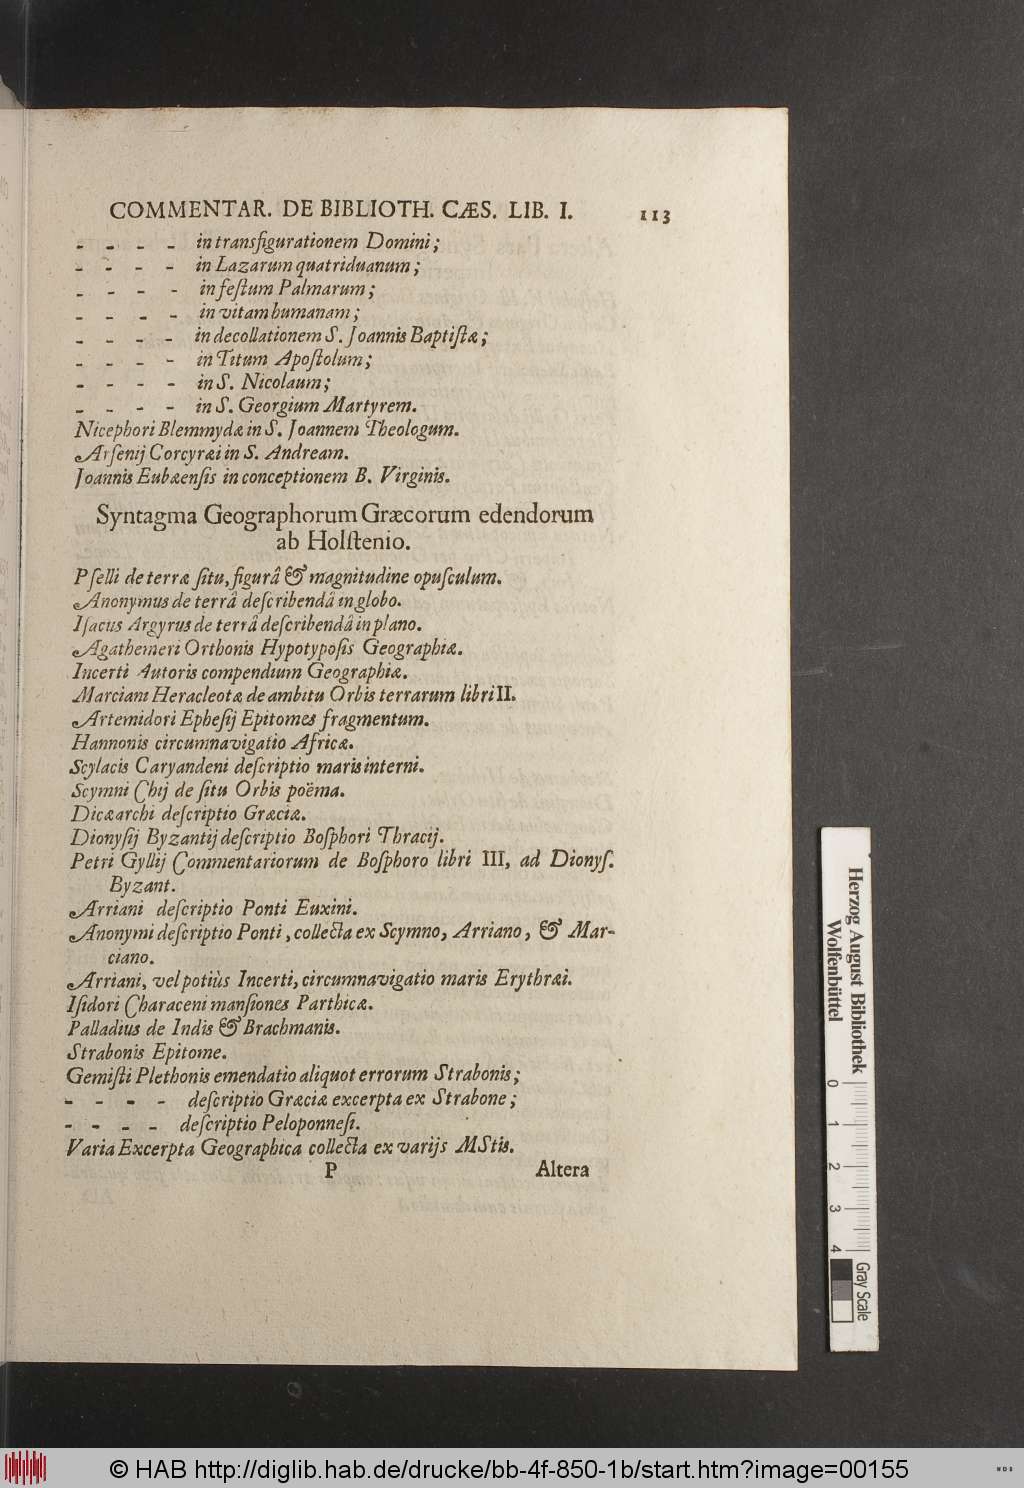 COMMENTAR. DE BIBLIOTH. CÆS. LIB. I. 113
- - - - in transfigurationem Domini;
- - - - in Lazarum quatriduanum;
- - - - in feſtum Palmarum;
- - - - in vitam humanam;
- - - - in decollationem S. Joannis Baptiſtæ;
- - - - in Titum Apoſtolum;
- - - - in S. Nicolaum;
- - - - in S. Georgium Martyrem.
Nicephori Blemmydæ in S. Joannem Theologum.
Arſenij Corcyræi in S. Andream.
Joannis Eubæenſis in conceptionem B. Virginis.
Syntagma Geographorum Græcorum edendorum
ab Holſtenio.
Pſelli de terræ ſitu, figurâ & magnitudine opuſculum.
Anonymus de terrâ deſcribendâ in globo.
Iſacus Argyrus de terrâ deſcribendâ in plano.
Agathemeri Orthonis Hypotypoſis Geographiæ.
Incerti Autoris compendium Geographiæ.
Marciani Heracleotæ de ambitu Orbis terrarum libri II.
Artemidori Epheſij Epitomes fragmentum.
Hannonis circumnavigatio Africæ.
Scylacis Caryandeni deſcriptio maris interni.
Scymni Chij de ſitu Orbis poëma.
Dicæarchi deſcriptio Græciæ.
Dionyſij Byzantij deſcriptio Boſphori Thracij.
Petri Gyllij Commentariorum de Boſphoro libri III, ad Dionyſ.
Byzant.
Arriani deſcriptio Ponti Euxini.
Anonymi deſcriptio Ponti, collecta ex Scymno, Arriano, & Mar-
ciano.
Arriani, vel potiùs Incerti, circumnavigatio maris Erythræi.
Iſidori Characeni manſiones Parthicæ.
Palladius de Indis & Brachmanis.
Strabonis Epitome.
Gemiſti Plethonis emendatio aliquot errorum Strabonis;
- - - - deſcriptio Græciæ excerpta ex Strabone;
- - - - deſcriptio Peloponneſi.
Varia Excerpta Geographica collecta ex varijs MStis.
P Altera
Herzog August Bibliothek
Wolfenbüttel
0 1 2 3 4
Gray Scale
© HAB http://diglib.hab.de/drucke/bb-4f-850-1b/start.htm?image=00155